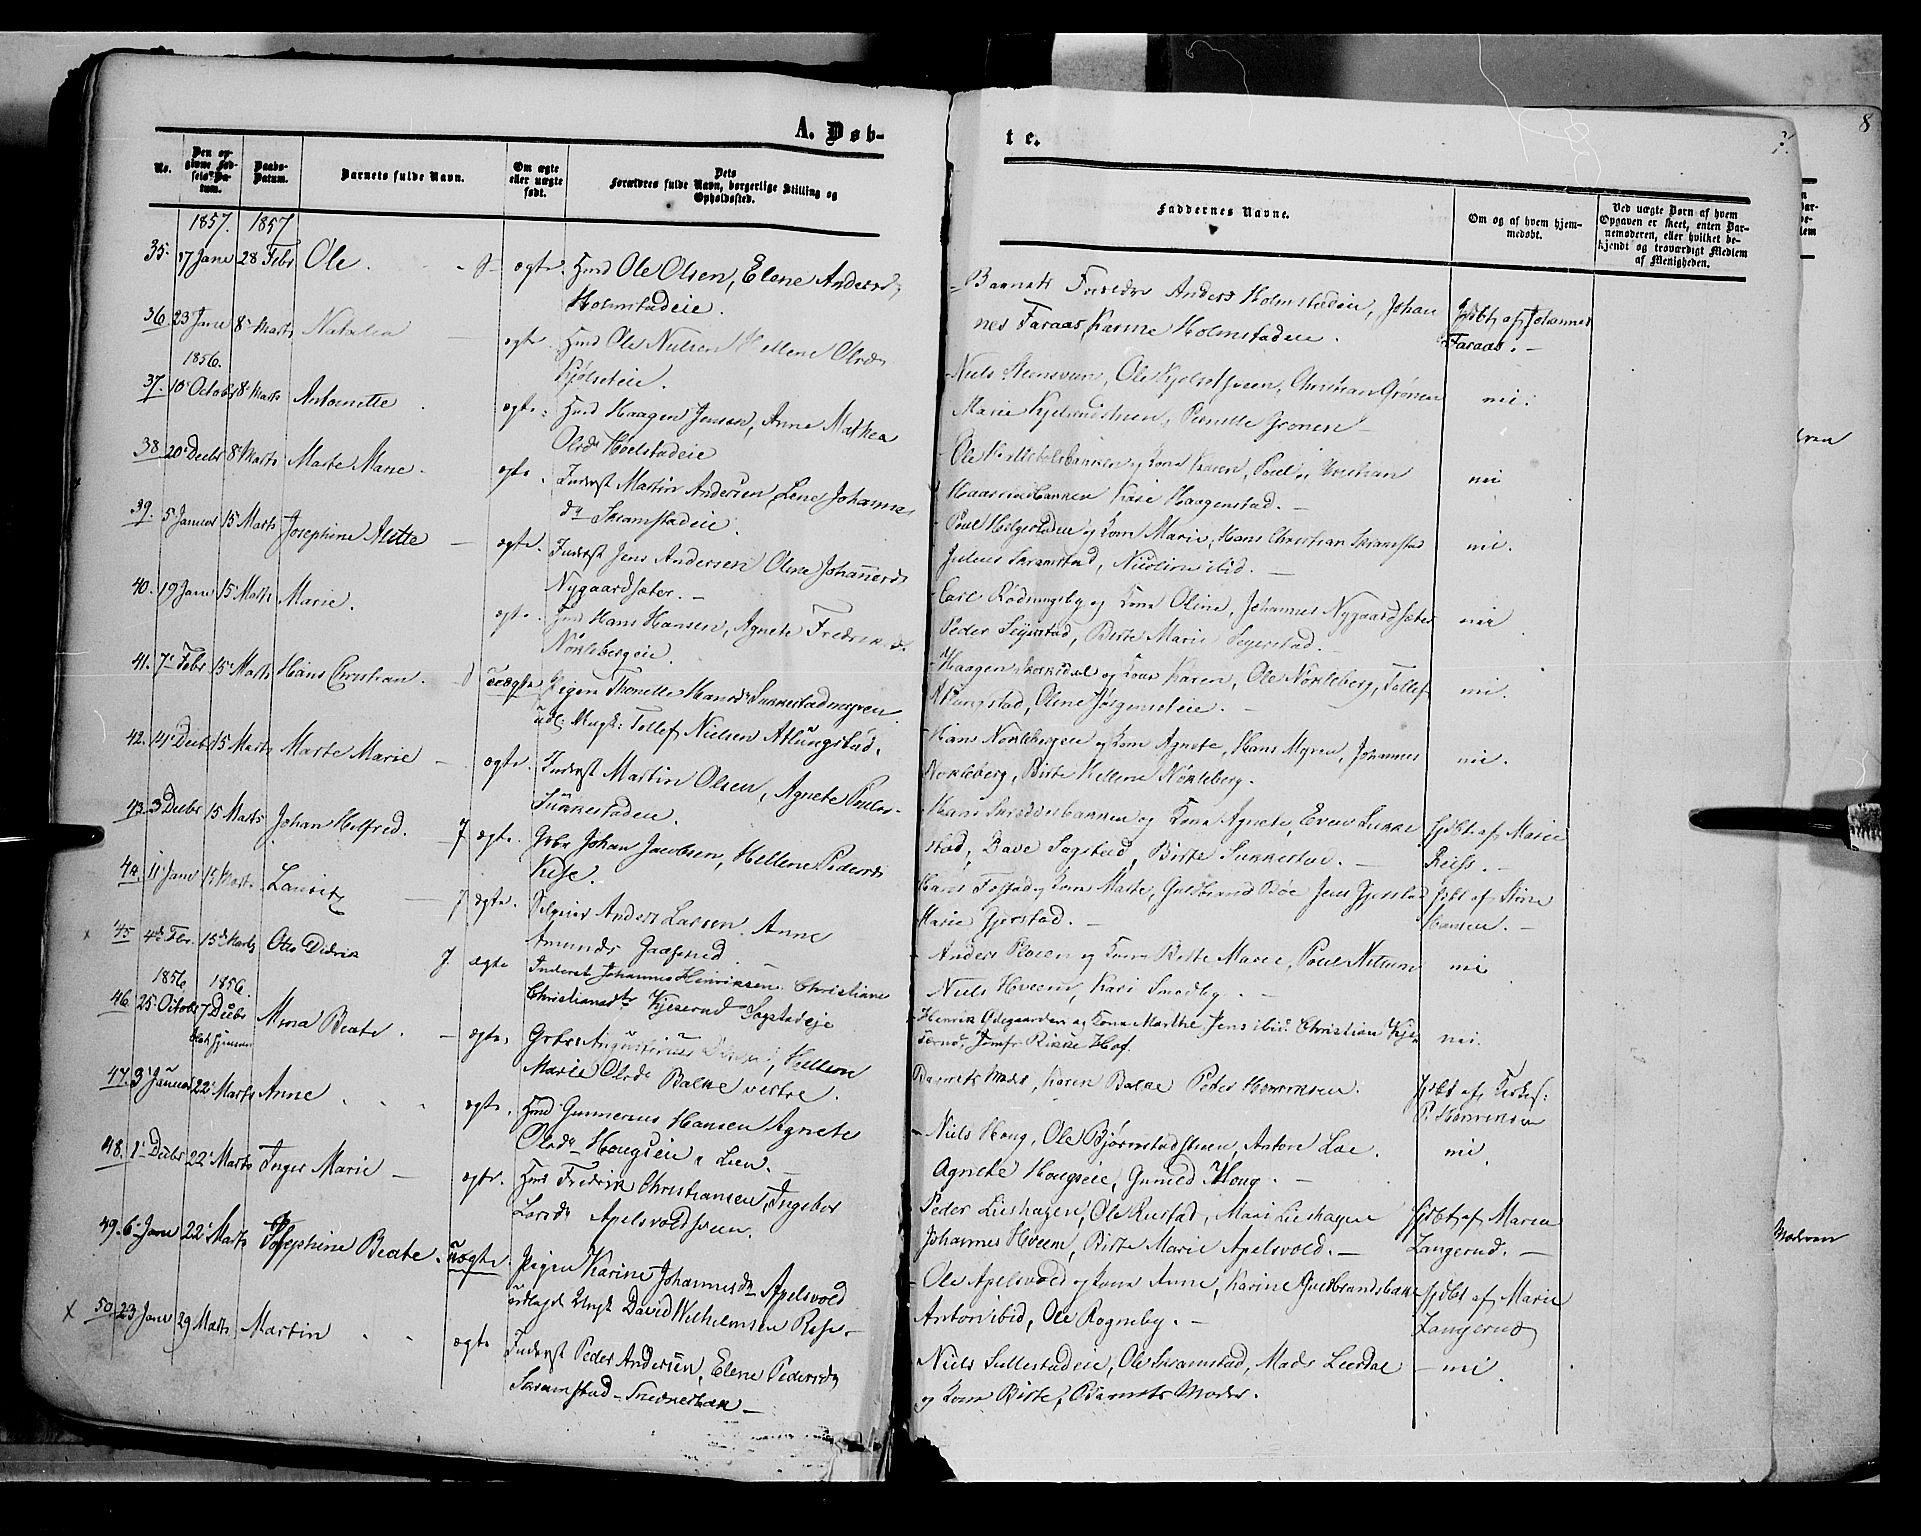 A. Døb-
te.
8
7.
No.
Den opgivne Fødsels Datum.
Daabs-Datum.
Barnets fulde Navn.
Om ægte eller uægte født.
Dets Forældres fulde Navn, borgerlige Stilling og Opholdssted.
Faddernes Navne.
Om og af hvem hjemmedøbt.
Ved uægte Børn af hvem Opgaven er skeet, enten Barnemoderen, eller hvilket bekjendt og troværdigt Medlem af Menigheden.
1857. 1857
35. 17 Janr 28 Febr Ole. ægte. Hmd Ole Olsen, Elene Andersd
Holmstadeie.
Barnets Forældre Anders Holmstadeie, Johan
nes Faraas, Karine Holmstadeie.
hjdbt af Johannes
Faraas.
36. 23 Janr 8 Marts Natalia ægte. Hmd Ole Nielsen Hellene Olsd
Kjølseteie.
Niels Steensveen, Ole Kjølsetsveen, Christian Grønen
Marie Kjelsrudstuen, Pernille Gronen
nei.
1856.
37. 10 Octobr 8 Marts Antoinette ægte. Hmd Haagen Jensen, Anne Mathea
Olsd Hoelstadeie
Ole og Kona Karen, Poul og Christian
Kari Haagenstad.
nei
38. 20 Decbr 8 Marts Marte Marie. ægte. Inderst Martin Andersen, Lene Johannes
dr Skramstadeie.
Poul Helgestadeie og Kona Marie, Hans Christian Skramstad
Julius Skramstad, Nicoline ibid.
nei.
39. 5 Januar 15 Marts Josephine Alette ægte. Inderst Jens Andersen Olene Johannesd
Nygaardsæter.
Carl Rødningsby og Kona Oline, Johannes Nygaardsæter
Peder Sejerstad, Birte Marie Sejerstad.
nei
40. 19 Janr 15 Marts Marie. ægte. Hmd Hans Hansen, Agnete Fredriksd
Nøklebergeie.
Haagen og Kona Karen, Ole Nøkleberg, Tollef
Alungstad, Olene Jørgenseie.
nei.
41. 7 Febr 15 Marts Hans Christian. uægte Pigen Thonette Hansd Sukkestadmyren.
udl: Ungk: Tollef Nielsen Alungstad.
Hans Nøklebergeie og Kona Agnete, Hans Myren, Johannes
Nøkleberg, Birte Hellene Nøkleberg.
nei.
42. 14 Decbr 15 Marts Marte Marie ægte. Inderst Martin Olsen, Agnete
Sukkestadeie.
Hans Skrædderbakken og Kona Agnete, Even Sukke
stad, Sagstad, Birte Sukkestad.
hjdbt af Marie
43. 3 Decbr 15 Marts Johan Helfred. ægte. Grbr Johan Jacobsen, Hellene Pedersd
Kise.
Hans og Kona Marte, Guldbrand Bøe Jens Gjerstad
Marie Gjerstad.
hjdbt af Stine
Hansen.
44. 11 Janr 15 Marts Lauritz ægte. Selveier Anders Larsen, Anne
Amundsd
Anders Olsen og Kona Birte Marie, Poul Nielsen
Niels Hveem, Kari Smedby.
nei
x 45 4de Fbr. 15de Marts Otto Didrik ægte Inderst Johannes Henriksen, Christiane
Christiansdtr Kjeserud Sagstadeje
Henrik Ødegaarden og Kona Marthe, Jens ibid. Christian
Jomfr Rikke Hof.
nei.
1856 1856.
46. 25 Octobr 7 Decbr Mina Beate. ægte. Grbr Augustinus Hellene
Marie Olsd Balke vestre.
Barnets Moder, Karen Balke Peter Henriksen.
hjdbt af Kirkes:
P. Henriksen
47. 3 Januar 22 Marts Anne ægte. Hmd Gunnerius Hansen Agnete
Olsd Hougseie
Niels Houg, Ole Bjørnstadstuen, Anton Loe.
Agnete Hougseie, Gunild Houg.
nei.
48. 1 Decbr 22 Marts Inger Marie ægte. Hmd Fredrik Christiansen, Ingebor
Larsd Apelsvoldsveen.
Peder Lieshagen, Ole Rustad, Mari Lieshagen
Johannes Hveem, Birte Marie Apelsvold.
hjdbt af Maren
Langerud.
49. 6 Janr 22 Marts Josephine Beate. uægte. Pigen Karine Johannesdr Apelsvold
udlagde Ungk David Wilhelmsen
Ole Apelsvold og Kona Anne, Karine Guldbrandsbakke
Anton ibid, Ole Rogneby.
hjdbt af Marie
Langerud
x 50. 23 Janr 29 Marts Martin ægte Inderst Peder Andersen, Elene Pedersd
Skramstad-Snedkerbak
Niels Sullestadeie, Ole Skramstad, Mads Lierdal
og Kona Birte, Barnets Moder.
nei.
Moderen